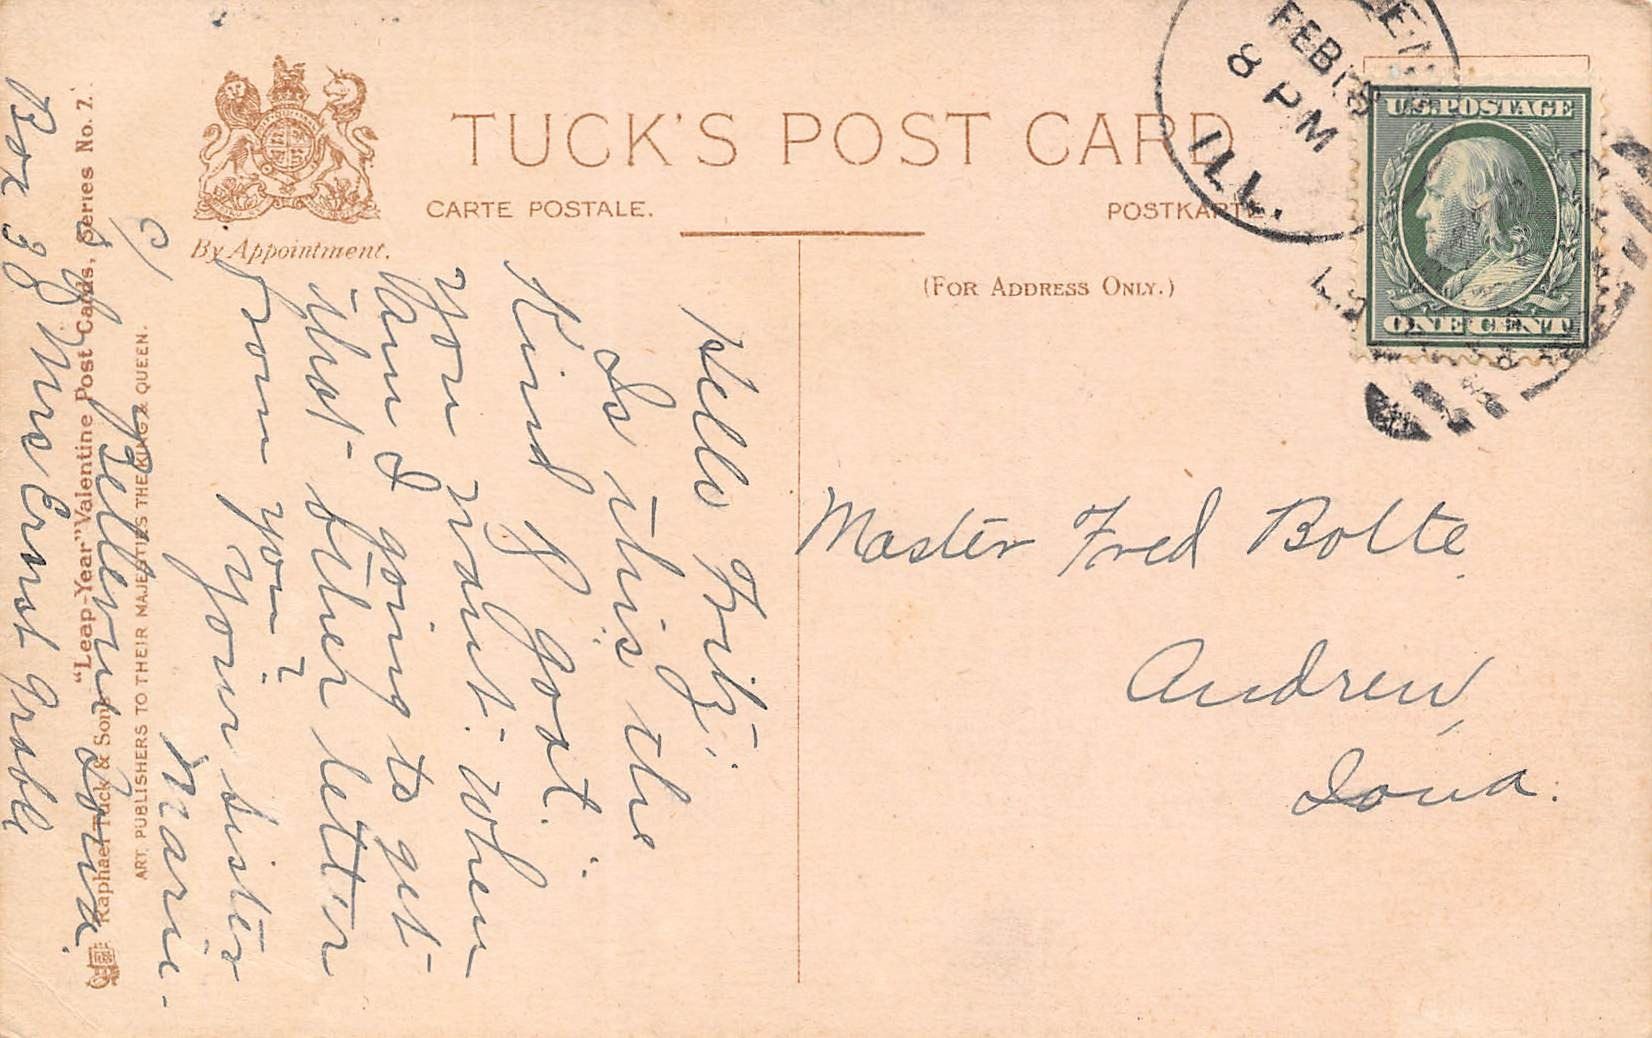 TUCK'S POST CARD
CARTE POSTALE.
POSTKARTE
By Appointment.
(FOR ADDRESS ONLY.)
FEB 18
8 PM
ILL.
U.S. POSTAGE
ONE CENT
Hello Fritz:
Is this the
Kind of goat
you want. When
am I going to get
that other letter
from you?
Your sister
Marie-
c/
Bellevue Iowa.
Box 38 Mrs Ernst Grable
Master Fred Bolte
Andrew,
Iowa.
"Leap-Year" Valentine Post Cards, Series No. 7.
Raphael Tuck & Sons
ART PUBLISHERS TO THEIR MAJESTIES THE KING & QUEEN.